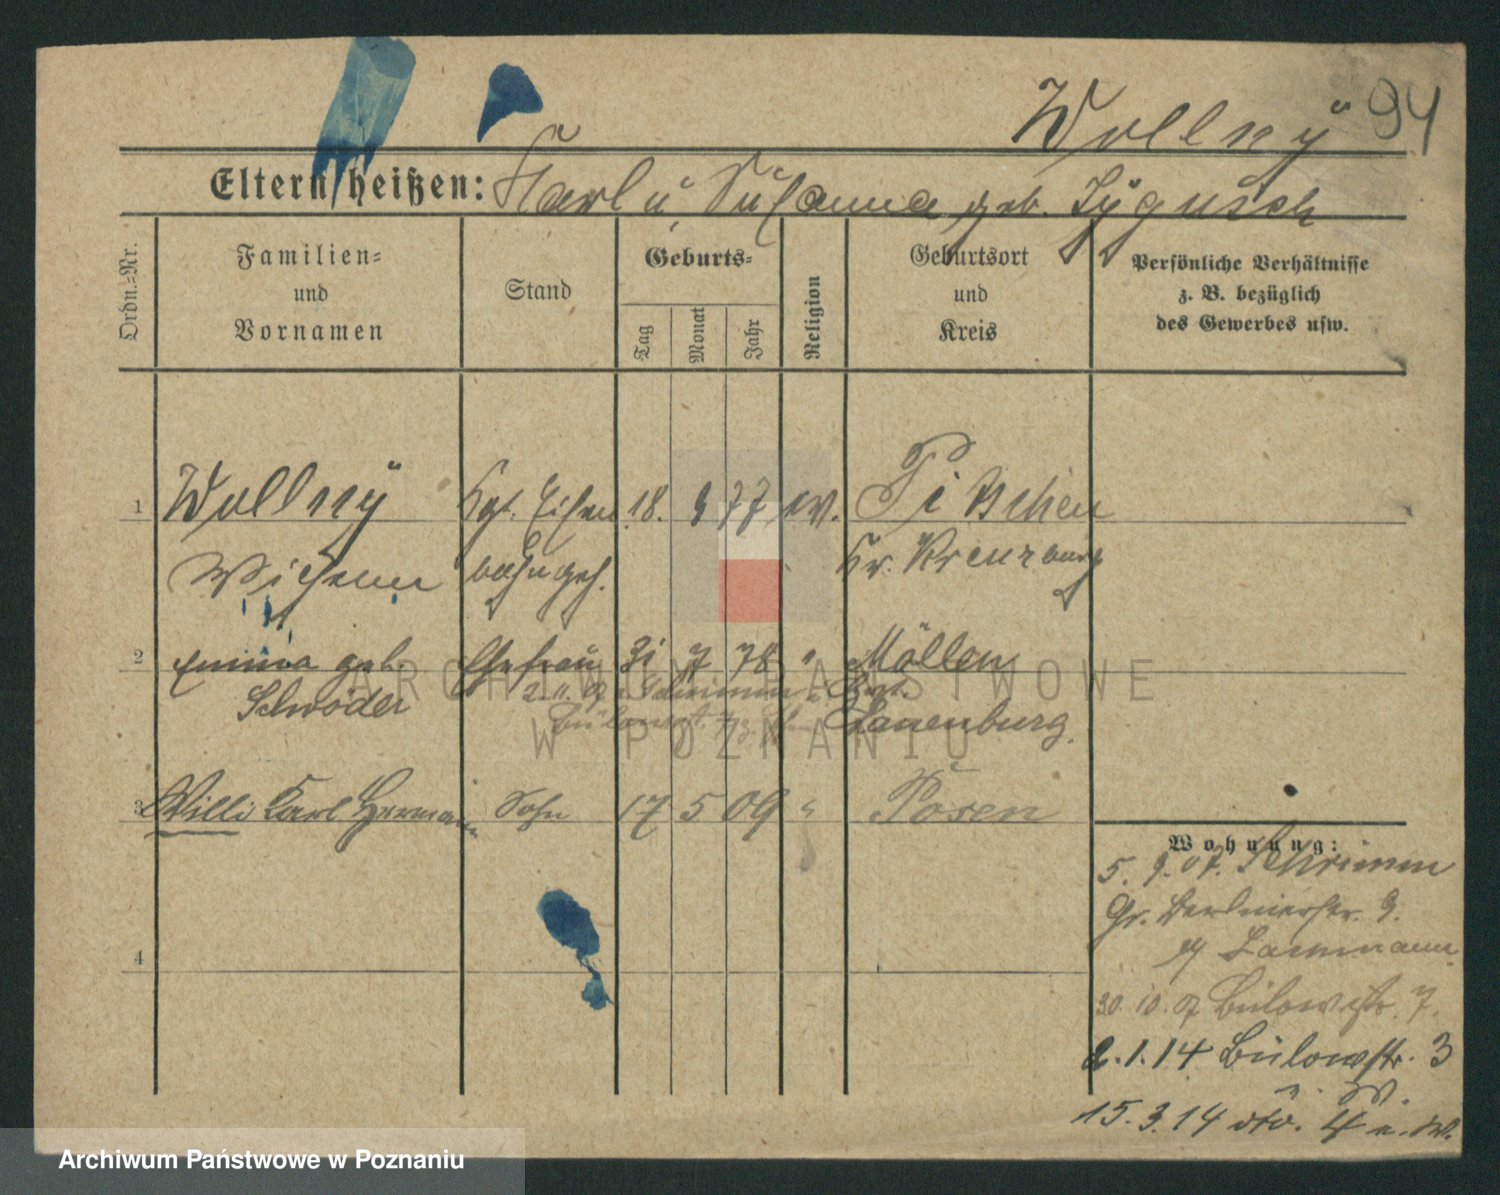 Wollny 94
Eltern heißen: Karl u. Susanna geb. Zygusch
Ordn.-Nr.
Familien-
und
Vornamen
Stand
Geburts-
Tag
Monat
Jahr
Religion
Geburtsort
und
Kreis
Persönliche Verhältnisse
z. B. bezüglich
des Gewerbes usw.
1 Wollny Kgl. Eisen 18. 9 77 ev. Pitschen
bahngeh. Kr. Kreuzburg
2 Emma geb. Ehefrau 31 7 78 " Möllen
Schröder
2.11.07
Lauenburg.
3 Willi Karl Hermann Sohn 17 5 09 " Posen
4
Wohnung:
5. 9. 07. Schrimm
Gr. Berlinerstr. 9.
30. 10. 07 Bülowstr. 7.
2.1.14 Bülowstr. 3
15.3.14 dto. 4 u. W.
ARCHIWUM PAŃSTWOWE
W POZNANIU
Archiwum Państwowe w Poznaniu